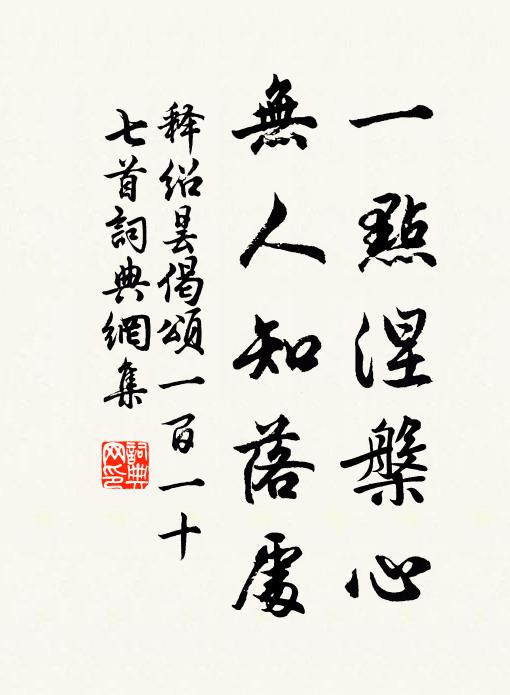 一點涅槃心
無人知落處
释绍昙偈頌一百一十
七首詞典網集
詞典
网印